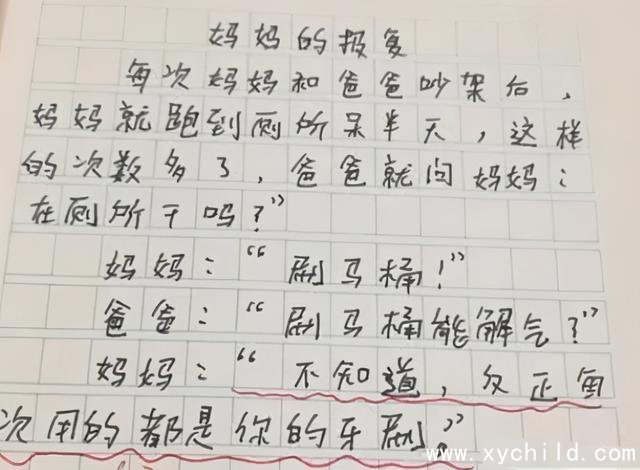 妈妈的报复
每次妈妈和爸爸吵架后，
妈妈就跑到厕所呆半天，这样
的次数多了，爸爸就问妈妈：
在厕所干吗？”
妈妈：“刷马桶！”
爸爸：“刷马桶能解气？”
妈妈：“不知道，反正每
次用的都是你的牙刷。”
www.xychild.com